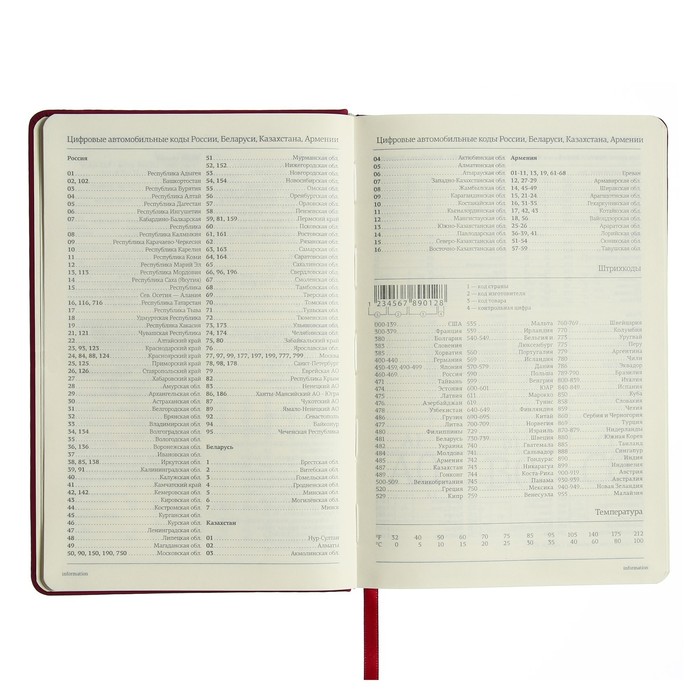 Цифровые автомобильные коды России, Беларуси, Казахстана, Армении
Россия
01 Республика Адыгея
02, 102 Башкортостан
03 Республика Бурятия
04 Республика Алтай
05 Республика Дагестан
06 Республика Ингушетия
07 Кабардино-Балкарская
Республика
08 Республика Калмыкия
09 Республика Карачаево-Черкесия
10 Республика Карелия
11 Республика Коми
12 Республика Марий Эл
13, 113 Республика Мордовия
14 Республика Саха (Якутия)
15 Республика
Сев. Осетия — Алания
16, 116, 716 Республика Татарстан
17 Республика Тыва
18 Удмуртская Республика
19 Республика Хакасия
21, 121 Чувашская Республика
22 Алтайский край
23, 93, 123 Краснодарский край
24, 84, 88, 124 Красноярский край
25, 125 Приморский край
26, 126 Ставропольский край
27 Хабаровский край
28 Амурская обл.
29 Архангельская обл.
30 Астраханская обл.
31 Белгородская обл.
32 Брянская обл.
33 Владимирская обл.
34, 134 Волгоградская обл.
35 Вологодская обл.
36, 136 Воронежская обл.
37 Ивановская обл.
38, 85, 138 Иркутская обл.
39, 91 Калининградская обл.
40 Калужская обл.
41 Камчатский край
42, 142 Кемеровская обл.
43 Кировская обл.
44 Костромская обл.
45 Курганская обл.
46 Курская обл.
47 Ленинградская обл.
48 Липецкая обл.
49 Магаданская обл.
50, 90, 150, 190, 750 Московская обл.
51 Мурманская обл.
52, 152 Нижегородская обл.
53 Новгородская обл.
54, 154 Новосибирская обл.
55 Омская обл.
56 Оренбургская обл.
57 Орловская обл.
58 Пензенская обл.
59, 81, 159 Пермский край
60 Псковская обл.
61, 161 Ростовская обл.
62 Рязанская обл.
63, 163 Самарская обл.
64, 164 Саратовская обл.
65 Сахалинская обл.
66, 96, 196 Свердловская обл.
67 Смоленская обл.
68 Тамбовская обл.
69 Тверская обл.
70 Томская обл.
71 Тульская обл.
72 Тюменская обл.
73, 173 Ульяновская обл.
74, 174 Челябинская обл.
75, 80 Забайкальский край
76 Ярославская обл.
77, 97, 99, 177, 197, 199, 777, 799 Москва
78, 98, 178 Санкт-Петербург
79 Еврейская АО
82 Республика Крым
83 Ненецкий АО
86, 186 Ханты-Мансийский АО - Югра
87 Чукотский АО
89 Ямало-Ненецкий АО
92 Севастополь
94 Байконур
95 Чеченская Республика
Беларусь
1 Брестская обл.
2 Витебская обл.
3 Гомельская обл.
4 Гродненская обл.
5 Минская обл.
6 Могилёвская обл.
7 Минск
Казахстан
01 Нур-Султан
02 Алматы
03 Акмолинская обл.
information
Цифровые автомобильные коды России, Беларуси, Казахстана, Армении
04 Актюбинская обл.
05 Алматинская обл.
06 Атырауская обл.
07 Западно-Казахстанская обл.
08 Жамбылская обл.
09 Карагандинская обл.
10 Костанайская обл.
11 Кызылординская обл.
12 Мангистауская обл.
13 Южно-Казахстанская обл.
14 Павлодарская обл.
15 Северо-Казахстанская обл.
16 Восточно-Казахстанская обл.
Армения
01-11, 13, 19, 61-68 Ереван
12, 27-29 Армавирская обл.
14, 45-49 Ширакская обл.
15, 21-24 Арагацотнская обл.
16, 31-35 Гехаркуникская обл.
17, 42, 43 Котайкская обл.
18, 56 Вайоцдзорская обл.
25-26 Араратская обл.
36-39, 41 Лорийская обл.
51-54 Сюникская обл.
57-59 Тавушская обл.
Штрихкоды
1 234567 890128
1 — код страны
2 — код изготовителя
3 — код товара
4 — контрольная цифра
000-139 США
300-379 Франция
380 Болгария
383 Словения
385 Хорватия
400-440 Германия
450-459, 490-499 Япония
460-469 Россия
471 Тайвань
474 Эстония
475 Латвия
476 Азербайджан
478 Узбекистан
486 Грузия
477 Литва
480 Филиппины
481 Беларусь
482 Украина
484 Молдова
485 Армения
487 Казахстан
489 Гонконг
500-509 Великобритания
520 Греция
529 Кипр
535 Мальта
540-549 Бельгия и
Люксембург
560 Португалия
569 Исландия
570-579 Дания
590 Польша
599 Венгрия
600-601 ЮАР
611 Марокко
619 Тунис
640-649 Финляндия
690-695 Китай
700-709 Норвегия
729 Израиль
730-739 Швеция
740 Гватемала
741 Сальвадор
742 Гондурас
743 Никарагуа
744 Коста-Рика
745 Панама
750 Мексика
759 Венесуэла
760-769 Швейцария
770 Колумбия
773 Уругвай
775 Перу
779 Аргентина
780 Чили
786 Эквадор
789-790 Бразилия
800-839 Италия
840-849 Испания
850 Куба
858 Словакия
859 Чехия
860 Сербия и Черногория
869 Турция
870-879 Нидерланды
880 Южная Корея
885 Таиланд
888 Сингапур
890 Индия
899 Индонезия
900-919 Австрия
930-939 Австралия
940-949 Новая Зеландия
955 Малайзия
Температура
°F 32 40 50 60 70 75 85 95 105 140 175 212
°C 0 5 10 15 20 25 30 35 40 60 80 100
information